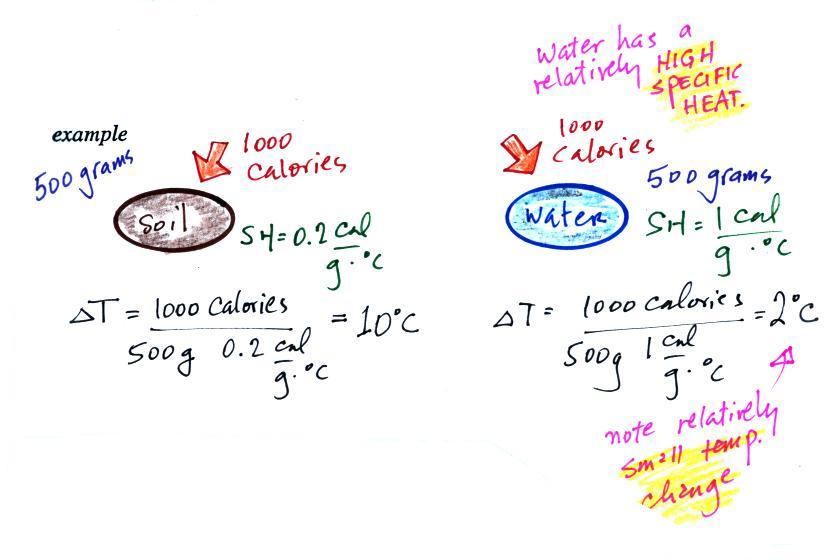 Water has a
relatively HIGH
SPECIFIC
HEAT.
example
500 grams
1000
Calories
Soil
SH = 0.2 cal
g · °C
ΔT = 1000 Calories
500g 0.2 cal
g · °C
= 10°C
1000
Calories
500 grams
Water
SH = 1 cal
g · °C
ΔT = 1000 calories
500g 1 cal
g · °C
= 2°C
note relatively
small temp.
change